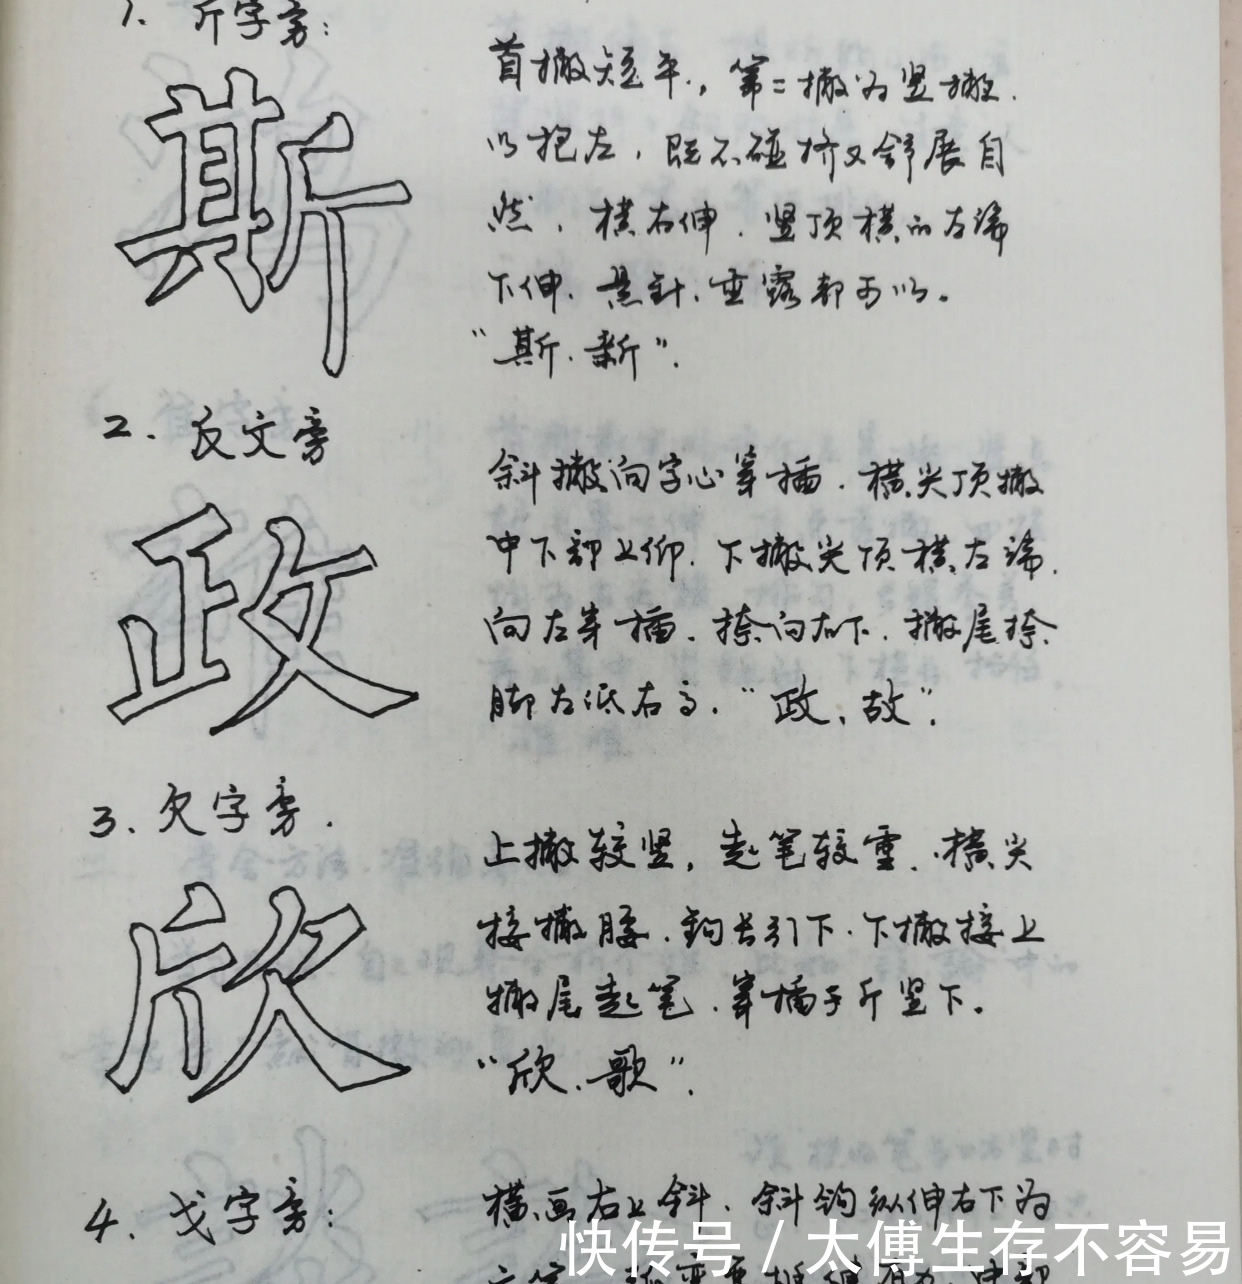 1. 斤字旁:
斯
首撇短平.，第二撇为竖撇.
以抱左，既不碰挤又舒展自
然，横右伸，竖顶横的左端
下伸.悬针、垂露都可以。
“斯.新”.
2. 反文旁
政
斜撇向字心穿插.横尖顶撇
中下部上仰.下撇尖顶横左端.
向左穿插.捺向右下.撇尾捺
脚左低右高.“政、故”.
3. 欠字旁.
欣
上撇较竖，起笔较重.横尖
接撇腰.钩长引下.下撇接上
撇尾起笔.穿插于斤竖下。
“欣.歌”.
4. 戈字旁:
横画右上斜.斜钩纵伸右下为
快传号/太傅生存不容易